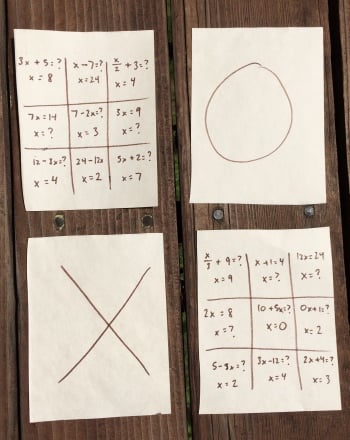 3x + 5 = ?
x = 8
x - 7 = ?
x = 24
x/2 + 3 = ?
x = 4
7x = 14
x = ?
7 - 2x = ?
x = 3
3x = 9
x = ?
x = 4
24 - 12x
x = 2
5x + 2 = ?
x = 7
x/3 + 9 = ?
x = 9
x + 1 = 4
x = ?
12x = 24
x = ?
2x = 8
x = ?
10 + 5x = ?
x = 0
0x + 1 = ?
x = 2
x = 2
3x - 12 = ?
x = 4
2x + 4 = ?
x = 3